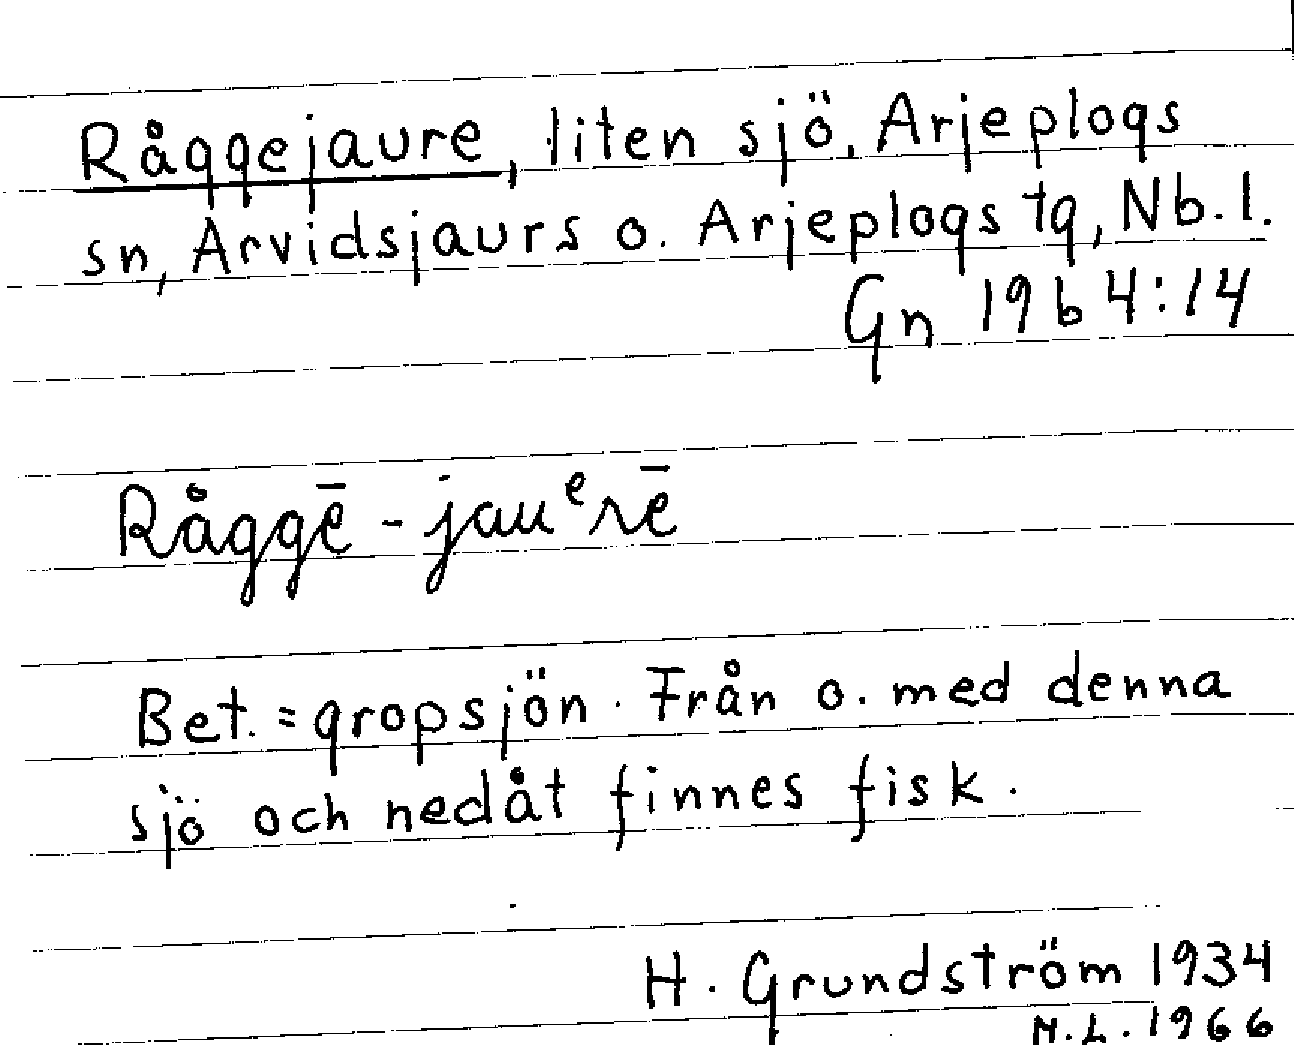 Råggejaure, liten sjö. Arjeplogs
sn, Arvidsjaurs o. Arjeplogs tg, Nb.l.
Gn 1964:14
Råggē-jauᵉrē
Bet. = gropsjön. Från o. med denna
sjö och nedåt finnes fisk.
H. Grundström 1934
N.L. 1966